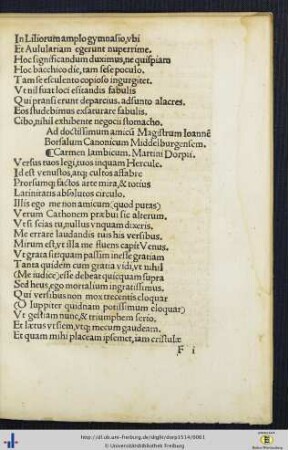 In Liliorum amplo gymnasio, vbi
Et Aululariam egerunt nuperrime.
Hoc significandum duximus, ne quispiam
Hoc bacchico die, tam sese poculo.
Tam se esculento copioso ingurgitet.
Vt nil suat loci esitandis fabulis
Qui pransi erunt deparcius. adsunto alacres.
Eos studebimus exsaturare fabulis.
Cibo, nihil exhibente negocii stomacho.
Ad doctissimum amicũ Magistrum Ioannẽ
Borsalum Canonicum Middelburgensem.
¶Carmen Iambicum. Martini Dorpii.
Versus tuos legi, tuos inquam Hercule.
Id est venustos, atq; cultos affabre
Prorsumq; factos arte mira, & totius
Latinitatis absolutos circulo.
Illis ego me non amicum (quod putas)
Verum Cathonem præbui sic alterum.
Vt si scias tu, nullus vnquam dixeris.
Me errare laudandis tuis his versibus.
Mirum est, vt illa me fluens capit Venus.
Vt grata sit quam passim inesse gratiam
Tanta quidem cum gratia vidi, vt nihil
(Me iudice) esse debeat quicquam supra
Sed heus, ego mortalium ingratissimus.
Qui versibus non mox trecentis eloquar
(O Iuppiter quidnam potissimum eloquar)
Vt gestiam nunc, & triumphem serio.
Et lætus vt sem, vtq; mecum gaudeam.
Et quam mihi placeam ipsemet, iam cristulæ
F i
http://dl.ub.uni-freiburg.de/diglit/dorp1514/0081
© Universitätsbibliothek Freiburg